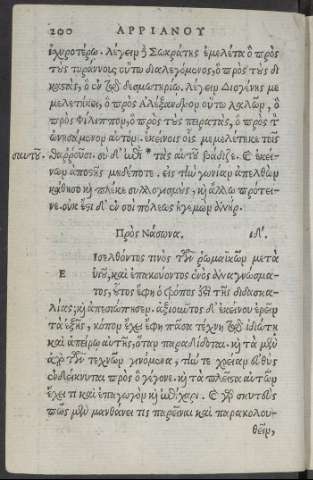 200 ΑΡΡΙΑΝΟΥ
ἐχυροτέρω. λέγειν ἢ Σωκράτης ἐμελέτα ὁ πρὸς
τοὺς τυράννοις οὕτω διαλεγόμενος, ὁ πρὸς τοὺς δι
καστὰς, ὁ ἐν τῷ δεσμωτηρίῳ. λέγειν Διογένης με
μελετήκει, ὁ πρὸς Αλέξανδρον οὕτω λαλῶν, ὁ
πρὸς Φίλιππον, ὁ πρὸς τοὺς πειρατὰς, ὁ πρὸς τὸν
ὠνησάμενον αὐτόν. ἐκείνοις οἷς μεμελέτηκε τοῖς
σαυτοῦ. θαρροῦσι. σὺ δ' ἐπὶ * τὰ σαυτοῦ βάδιζε. καὶ ἐκεί-
νων ἀποστῇς μηδέποτε. εἰς τὴν γωνίαν ἀπελθὼν
κάθισο καὶ πλέκε συλλογισμοὺς, καὶ ἄλλῳ πρότει-
νε. οὐκ ἔστι δ' ἐν σοὶ πόλεως ἡγεμὼν ἀνήρ.
Πρὸς Νάσωνα. ιδ'.
Εἰσελθόντος τινὸς τῶν ῥωμαϊκῶν μετὰ
υἱοῦ, καὶ ἐπακούοντος ἑνὸς ἀναγνώσμα-
τος, οὗτος ἔφη ὁ τρόπος ἐστὶ τῆς διδασκα-
λίας; καὶ ἀπεσιώπησεν. ἀξιοῦντος δ' ἐκείνου εὑρεῖν
τὰ ἑξῆς, κόπον ἔχει ἔφη πᾶσα τέχνη τῷ ἰδιώτῃ
καὶ ἀπείρῳ αὐτῆς, ὅταν παραδίδοται. καὶ τὰ μὲν
ἀπὸ τῶν τεχνῶν γινόμενα, τήν τε χρείαν εὐθὺς
ἐνδείκνυται πρὸς ὃ γέγονε. καὶ τὰ πλεῖστα αὐτῶν
ἔχει τι καὶ ἐπαγωγὸν καὶ ἐπίχαρι. καὶ γὰρ σκυτεὺς
πῶς μὲν μανθάνει τις παρεῖναι καὶ παρακολου-
θεῖν,